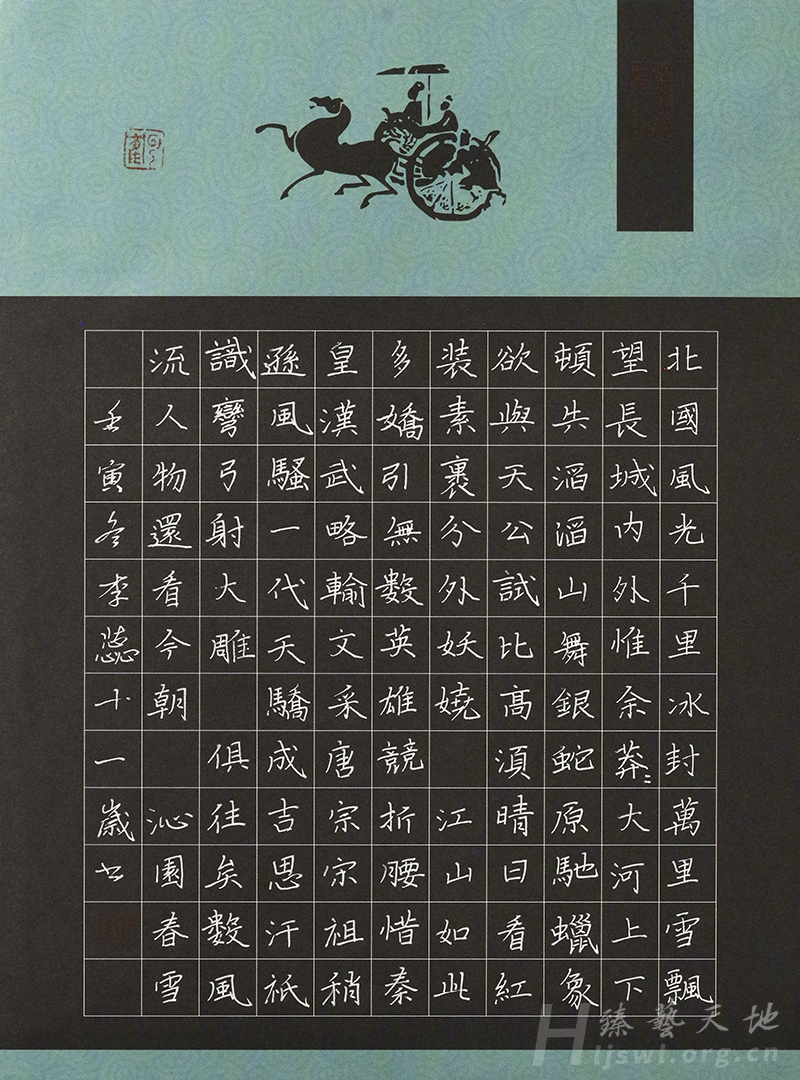 北國風光千里冰封萬里雪飄
望長城内外惟余莽〻大河上下
頓失滔滔山舞銀蛇原馳蠟象
欲與天公試比高須晴日看紅
装素裹分外妖嬈 江山如此
多嬌引無數英雄競折腰惜秦
皇漢武略輸文采唐宗宋祖稍
遜風騷一代天驕成吉思汗祇
識彎弓射大雕 俱往矣數風
流人物還看今朝 沁園春雪
壬寅冬李十一歲书
臻藝天地
Hljswl.org.cn